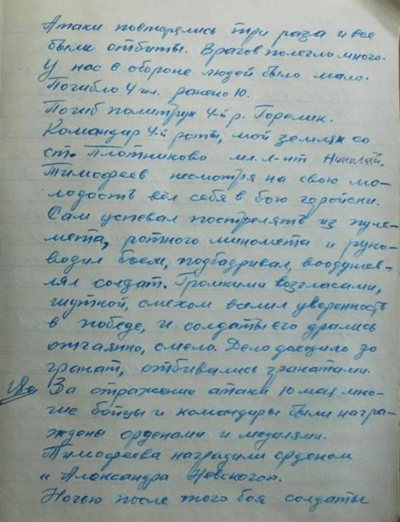 Атаки повторялись три раза и все
были отбиты. Врагов полегло много.
У нас в обороне людей было мало.
Погибло 4 чл. ранено 10.
Погиб политрук 4-й р. Горелик.
Командир 4-й роты, мой земляк со
ст. Плотниково мл. л-нт Николай
Тимофеев несмотря на свою мо-
лодость вёл себя в бою геройски.
Сам успевал пострелять из пуле-
мета, ротного миномета и руко-
водил боем, подбадривал, воодушев-
лял солдат. Громкими возгласами,
шуткой, смехом вселил уверенность
в победе, и солдаты его дрались
отчаянно, смело. Дело доходило до
гранат, отбивались гранатами.
За отражение атаки 10 мая мно-
гие бойцы и командиры были награ-
ждены орденами и медалями.
Тимофеева наградили орденом
"Александра Невского".
Ночью после того боя солдаты